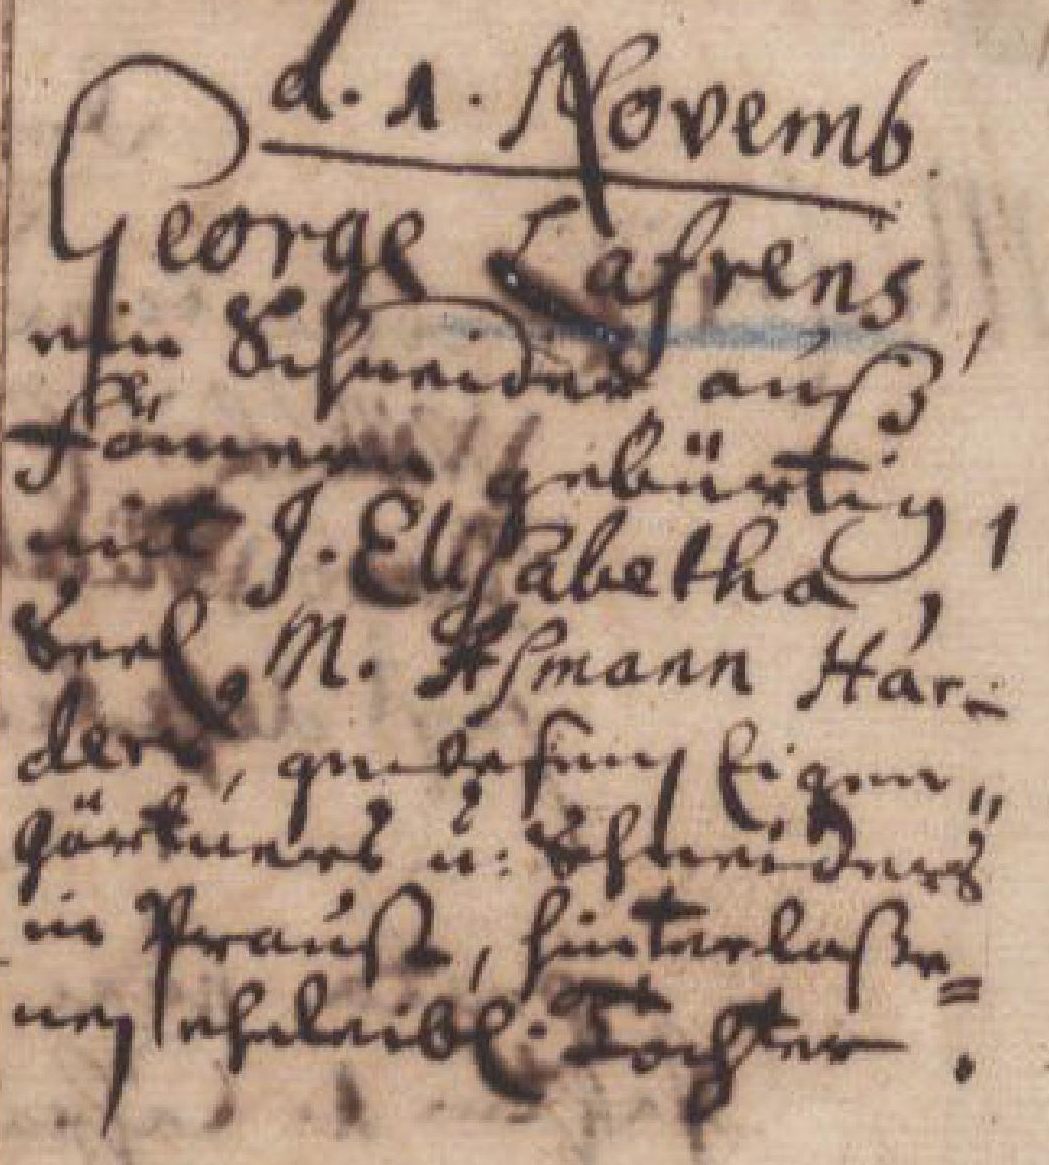 d. 1. Novemb.
George Lafrens,
ein Schneider auß
gebürtig,
mit J. Elisabetha,
Seel. M. Aßmann Har-
ders, gewesenen Eigen„
gärtners u. Schneiders
in Praust, hinterlaße=
nen ehaleibl. Tochter.